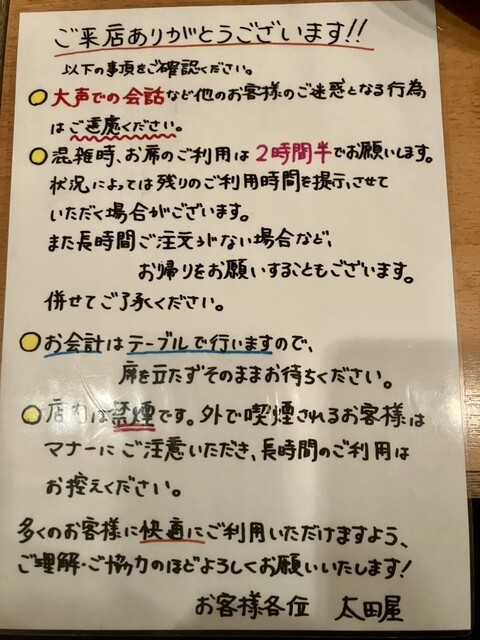 ご来店ありがとうございます!!
以下の事項をご確認ください。
大声での会話など他のお客様のご迷惑となる行為
はご遠慮ください。
混雑時、お席のご利用は2時間半でお願いします。
状況によっては残りのご利用時間を提示させて
いただく場合がございます。
また長時間ご注文がない場合など、
お帰りをお願いすることもございます。
併せてご了承ください。
お会計はテーブルで行いますので、
席を立たずそのままお待ちください。
店内は禁煙です。外で喫煙されるお客様は
マナーにご注意いただき、長時間のご利用は
お控えください。
多くのお客様に快適にご利用いただけますよう、
ご理解・ご協力のほどよろしくお願いいたします!
お客様各位 太田屋